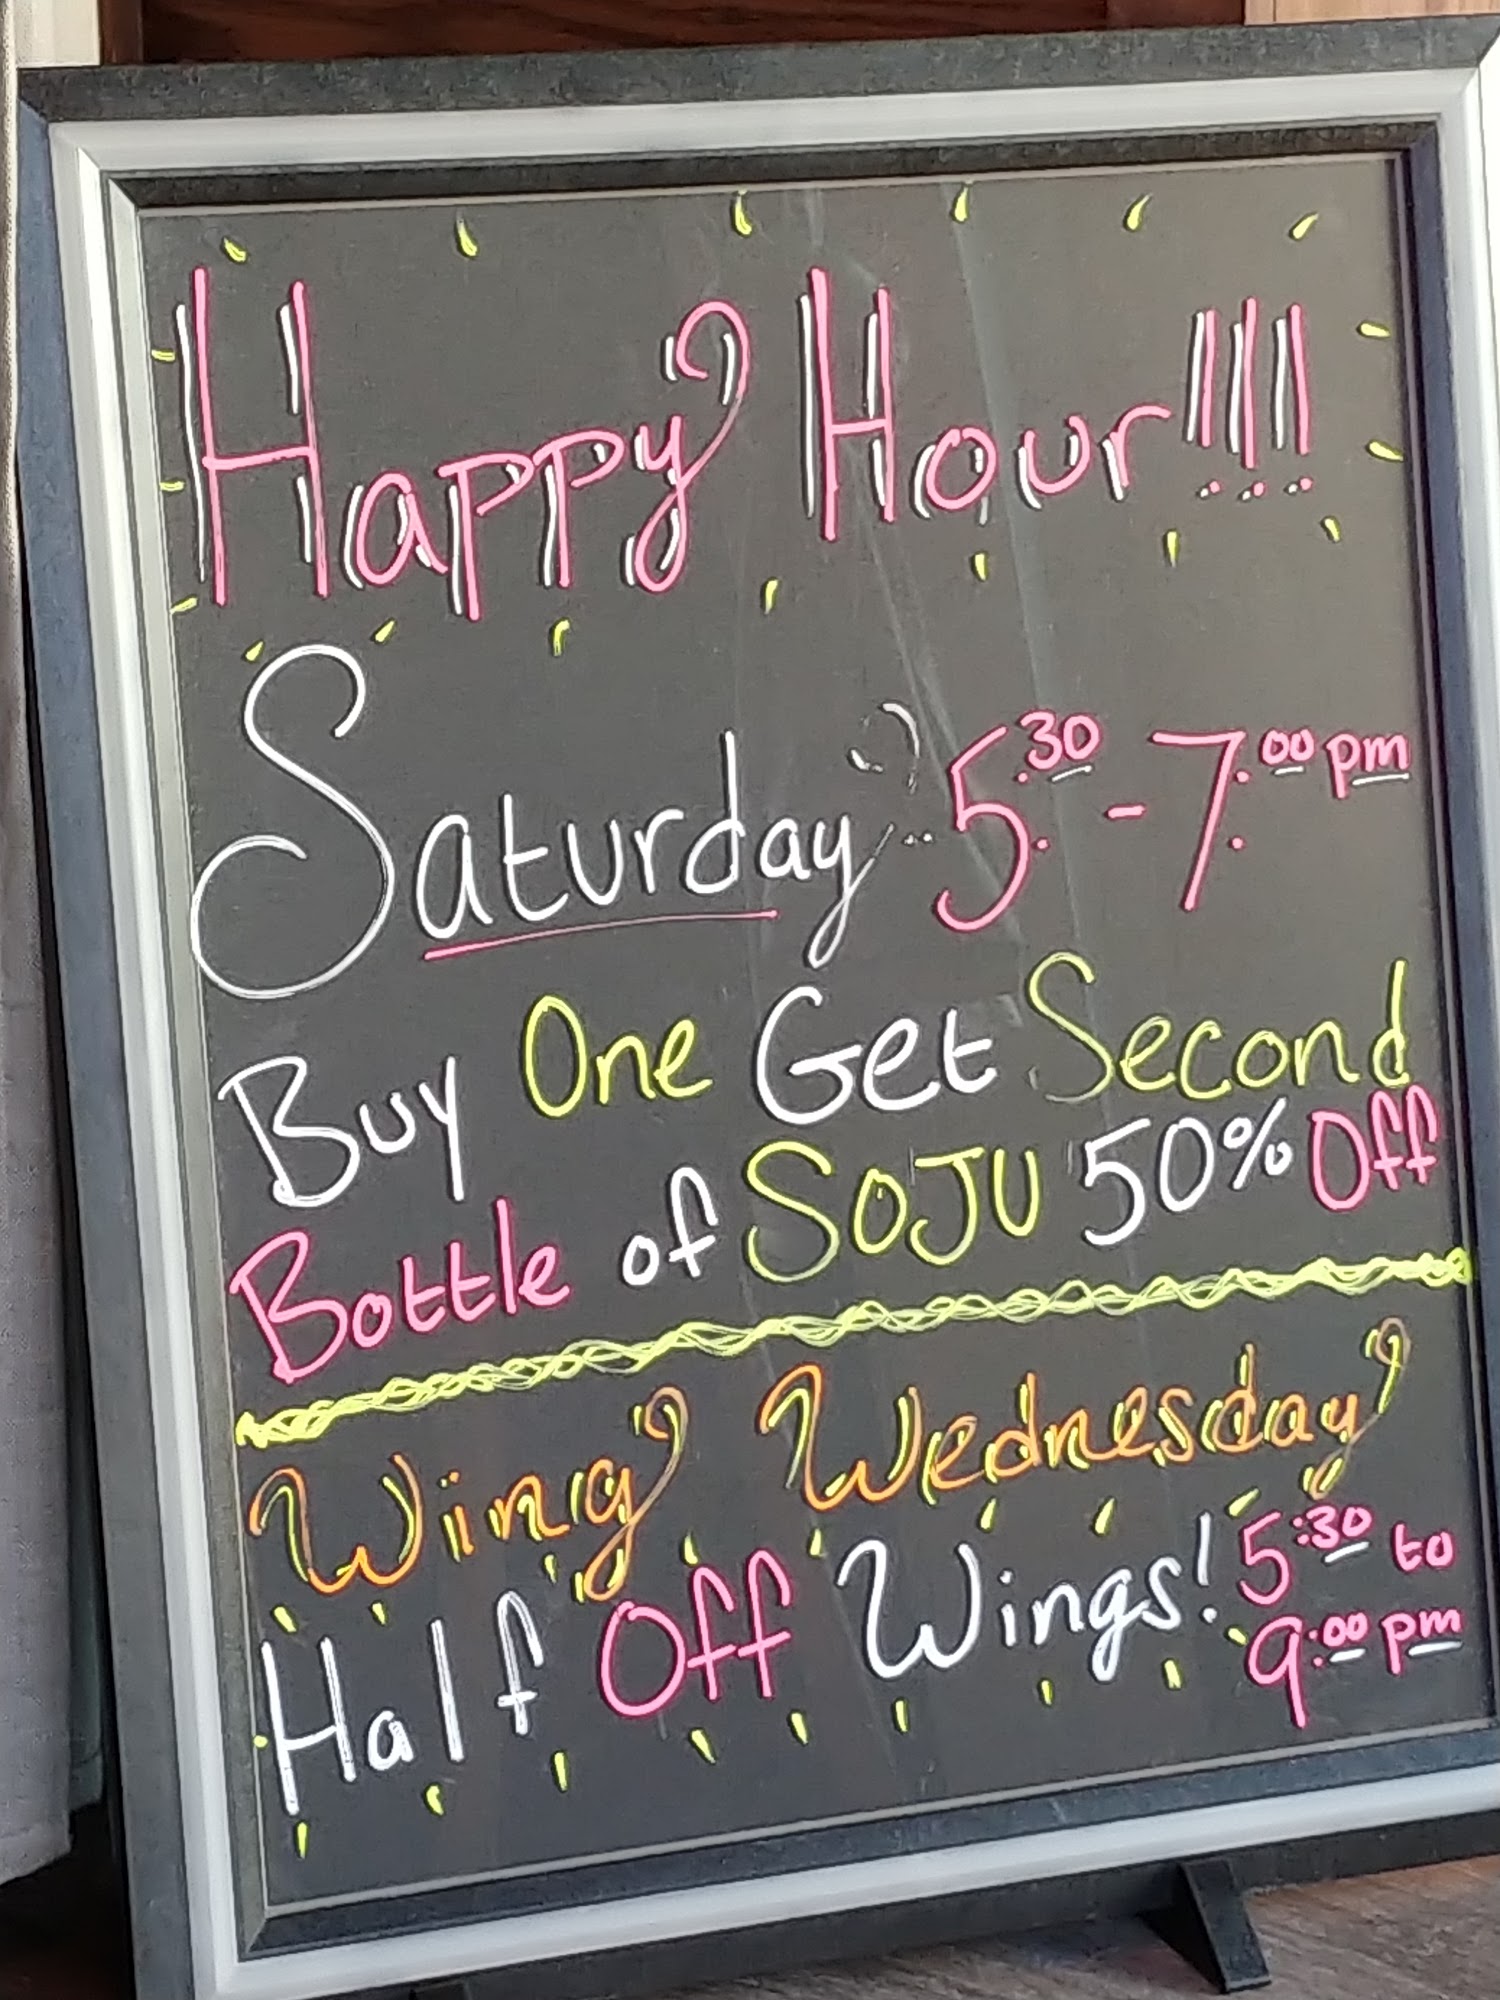 Happy Hour!!!
Saturday 5:30 - 7:00 pm
Buy One Get Second
Bottle of SOJU 50% Off
Wing Wednesday
Half Off Wings! 5:30 to
9:00 pm